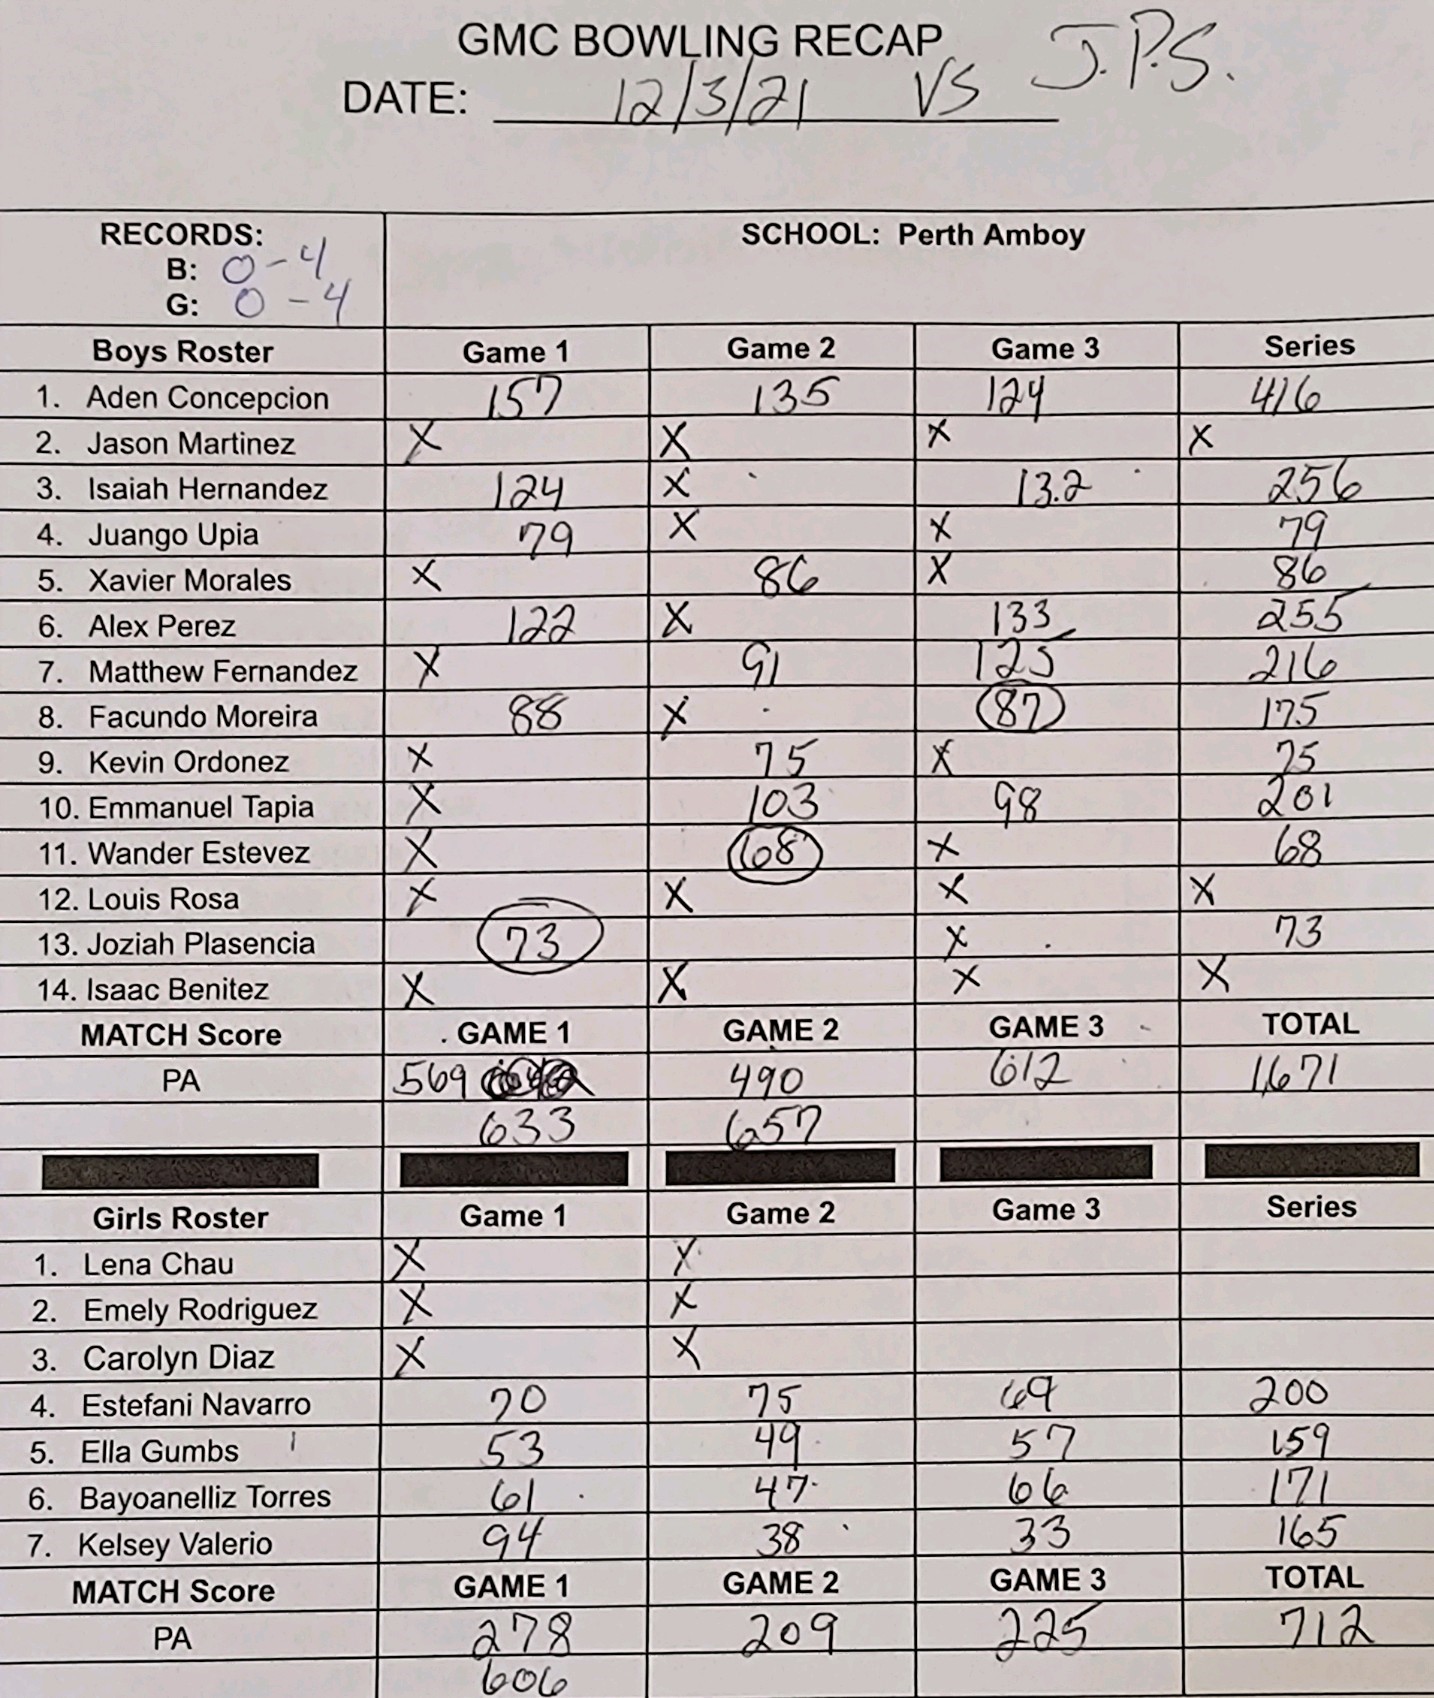 GMC BOWLING RECAP
DATE: 12/3/21 VS J.P.S.
RECORDS:
B: 0-4
G: 0-4
SCHOOL: Perth Amboy
Boys Roster Game 1 Game 2 Game 3 Series
1. Aden Concepcion 157 135 124 416
2. Jason Martinez X X X X
3. Isaiah Hernandez 124 X 13.2 256
4. Juango Upia 79 X X 79
5. Xavier Morales X 86 X 86
6. Alex Perez 122 X 133 255
7. Matthew Fernandez X 91 125 216
8. Facundo Moreira 88 X 87 175
9. Kevin Ordonez X 75 X 75
10. Emmanuel Tapia X 103 98 201
11. Wander Estevez X 68 X 68
12. Louis Rosa X X X X
13. Joziah Plasencia 73 X 73
14. Isaac Benitez X X X X
MATCH Score GAME 1 GAME 2 GAME 3 TOTAL
PA 569 490 612 1,671
633 657
Girls Roster Game 1 Game 2 Game 3 Series
1. Lena Chau X X
2. Emely Rodriguez X X
3. Carolyn Diaz X X
4. Estefani Navarro 70 75 69 200
5. Ella Gumbs 53 49 57 159
6. Bayoanelliz Torres 61 47 66 171
7. Kelsey Valerio 94 38 33 165
MATCH Score GAME 1 GAME 2 GAME 3 TOTAL
PA 278 209 225 712
606